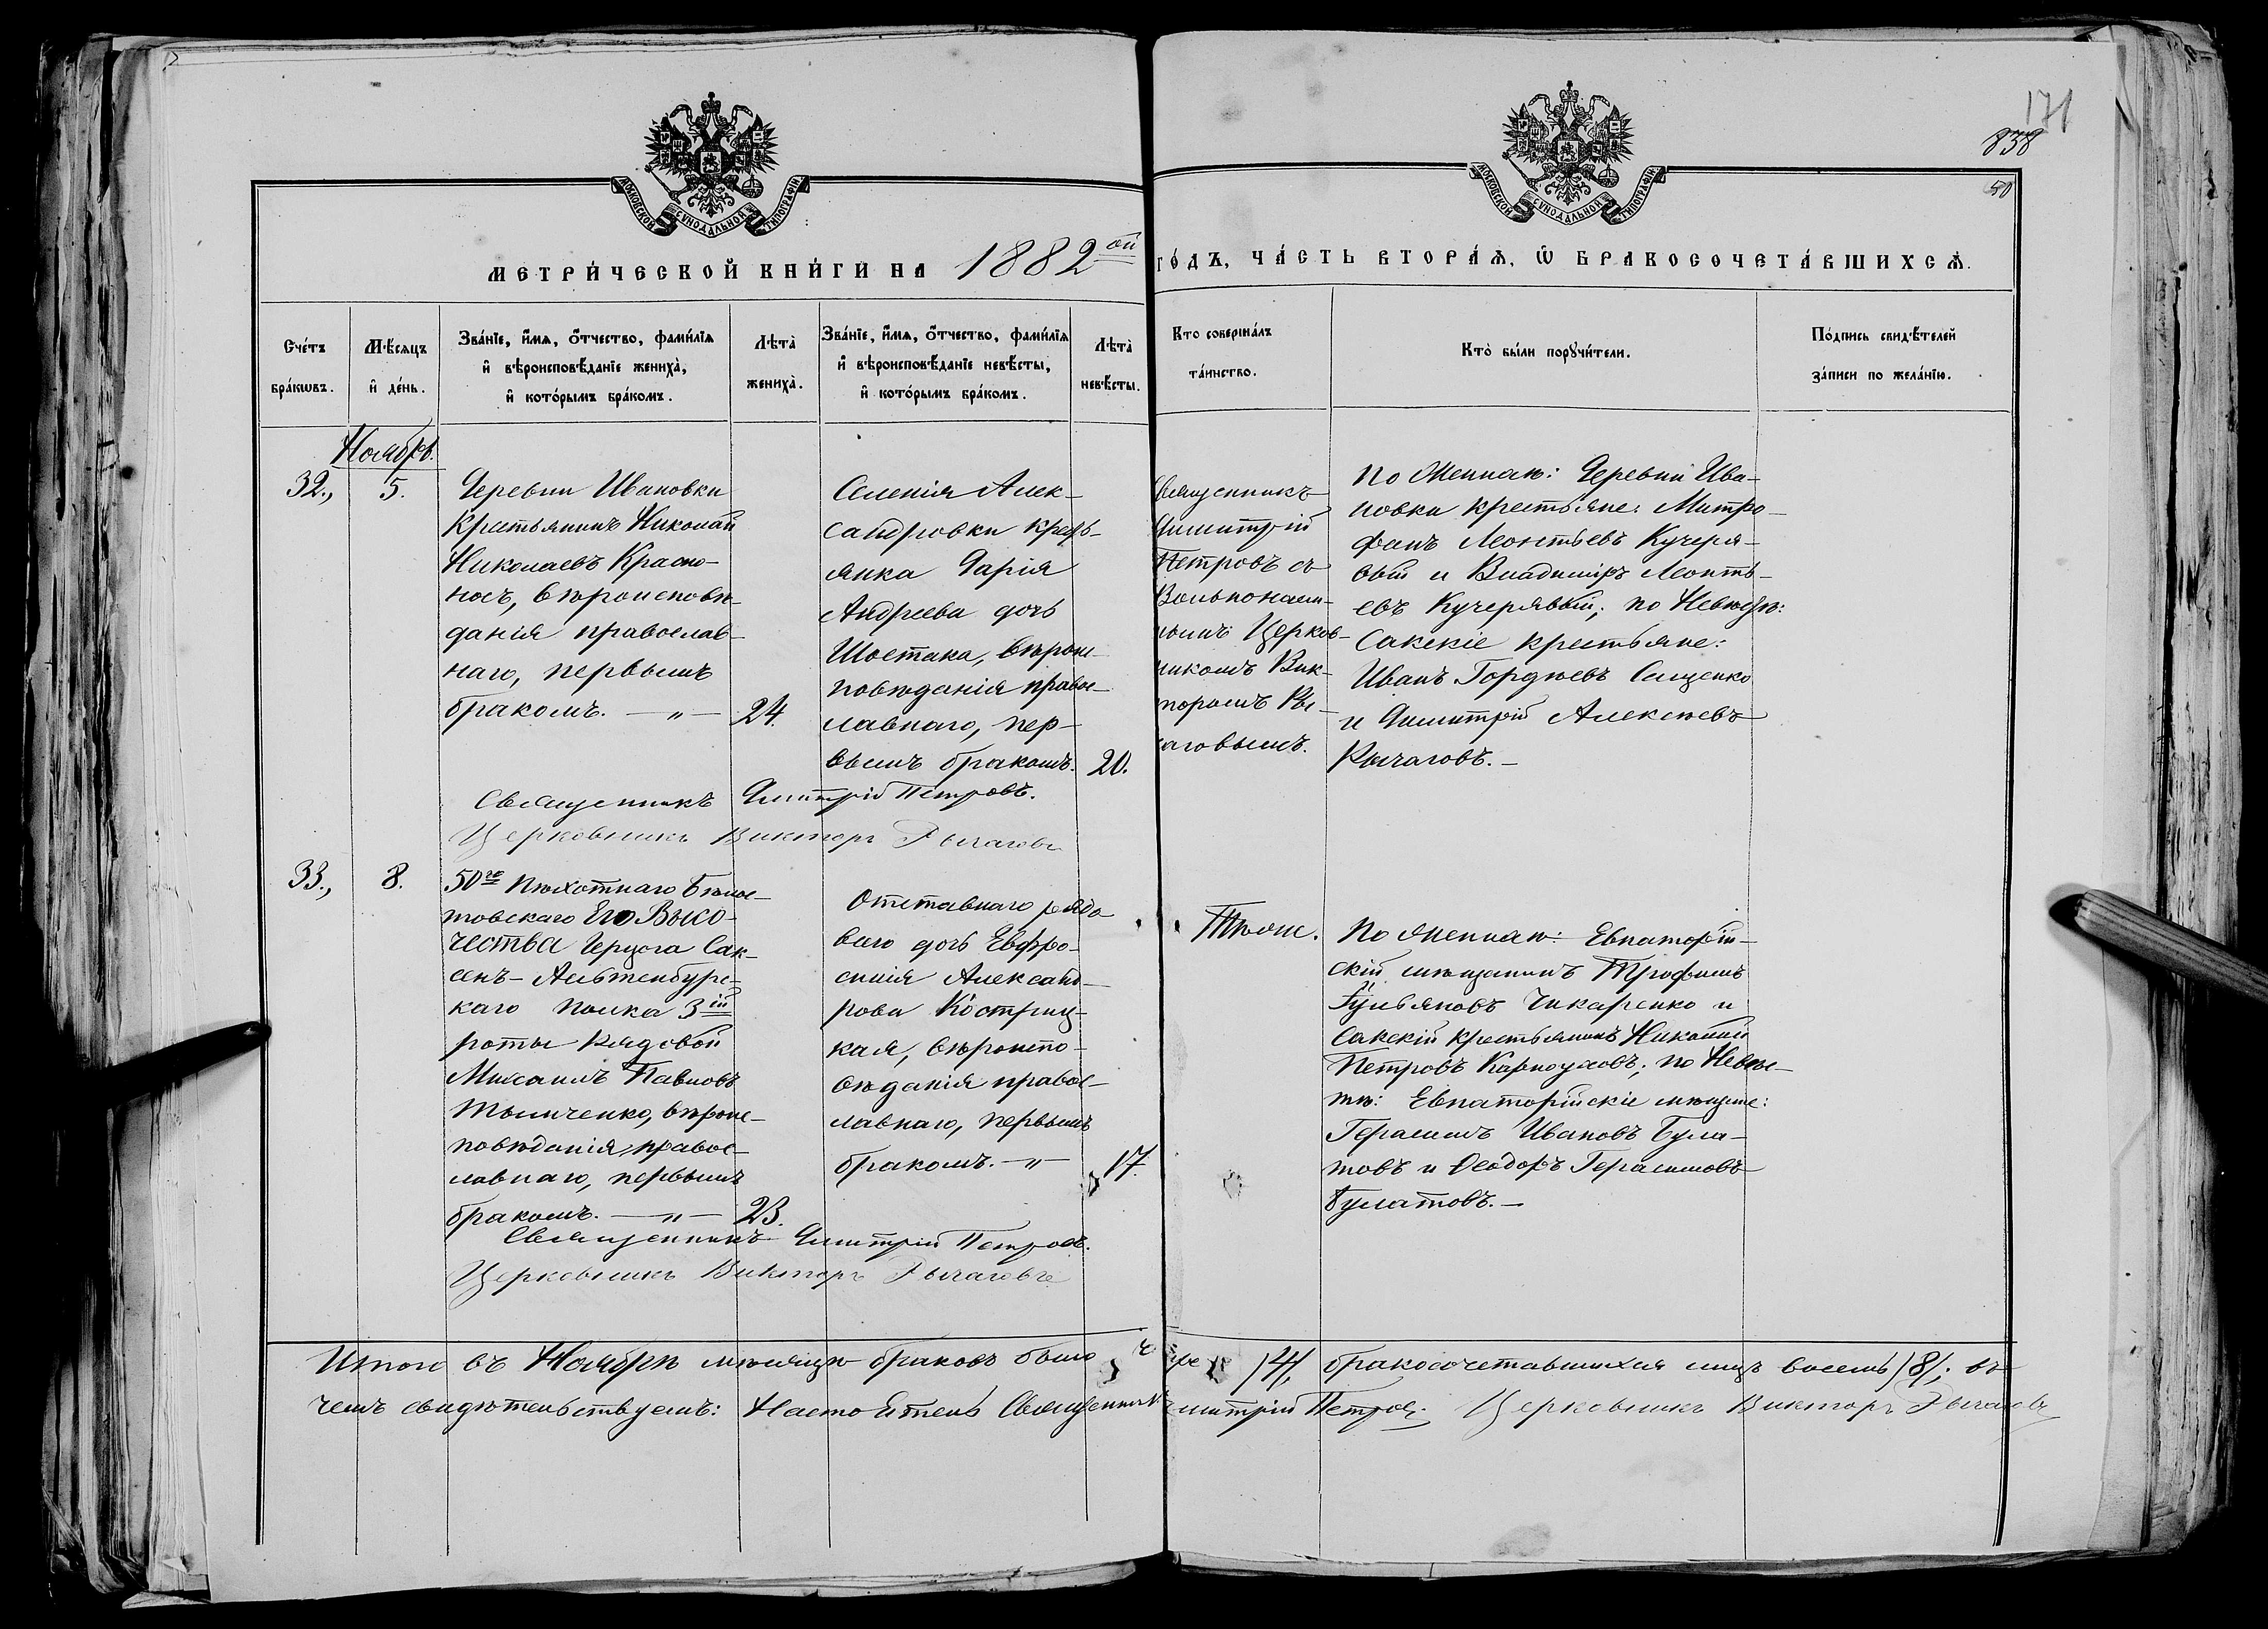 171
838
50
МОСКОВСКОЙ СѴНОДАЛЬНОЙ ТИПОГРАФІИ
МОСКОВСКОЙ СѴНОДАЛЬНОЙ ТИПОГРАФІИ
МЕТРИ́ЧЕСКОЙ КНИ́ГИ НА 1882ой го́дъ, ча́сть втора́ѧ, ѽ бракосочета́вшихсѧ.
Сче́тъ бра́кѡвъ.
Мѣ́сѧцъ и҆ де́нь.
Зва́нїе, и҆́мѧ, ѻ҆́тчество, фами́лїѧ
и҆ вѣроисповѣ́данїе жениха̀,
и҆ кото́рымъ бра́комъ.
Лѣта̀ жениха̀.
Зва́нїе, и҆́мѧ, ѻ҆́тчество, фами́лїѧ
и҆ вѣроисповѣ́данїе невѣ́сты,
и҆ кото́рымъ бра́комъ.
Лѣта̀ невѣ́сты.
Кто соверша́лъ та́инство.
Кто̀ бы́ли порꙋчи́тели.
По́дпись свидѣ́телей
за́писи по жела́нїю.
Ноябрь.
32., 5.
Деревни Ивановки
Крестьянинъ Николай
Николаевъ Красно-
носъ, вѣроисповѣ-
данія православ-
наго, первымъ
бракомъ. — „ — 24.
Селенія Алек-
сандровки кресть-
янка Дарія
Андреева дочь
Шостака, вѣроис-
повѣданія правос-
лавнаго, пер-
вымъ бракомъ. 20.
Священникъ
Димитрій
Петровъ съ
Вольнонаем-
нымъ Церков-
никомъ Вик-
торомъ Ры-
чаговымъ.
По Женихѣ: Деревни Ива-
новки крестьяне: Митро-
фанъ Леонтьевъ Кучеря-
вый и Владиміръ Леонть-
евъ Кучерявый; по Невѣстѣ:
Сакскіе крестьяне:
Иванъ Гордѣевъ Сащенко
и Димитрій Алексѣевъ
Рычаговъ. —
Священникъ Димитрій Петровъ.
Церковникъ Викторъ Рычаговъ
33., 8.
50го Пѣхотнаго Бѣлос-
токскаго Его Высо-
чества Герцога Сак-
сенъ-Альтенбургс-
каго полка 3ій
роты Рядовой
Михаилъ Павловъ
Тымченко, вѣроис-
повѣданія правос-
лавнаго, первымъ
бракомъ. — „ — 23.
Отставнаго рядо-
ваго дочь Евфро-
синія Александ-
рова Костриц-
кая, вѣроиспо-
вѣданія правос-
лавнаго, первымъ
бракомъ. — „ 17.
Тѣже.
По Женихѣ: Евпаторій-
скій мѣщанинъ Трофимъ
Гульяновъ Чикаренко и
Сакскій крестьянинъ Николай
Петровъ Карпоуховъ; по Невѣс-
тѣ: Евпаторійскіе мѣщане:
Герасимъ Ивановъ Була-
товъ и Ѳеодоръ Герасимовъ
Булатовъ. —
Священникъ Димитрій Петровъ.
Церковникъ Викторъ Рычаговъ
Итого въ Ноябрѣ мѣсяцѣ браковъ было четыре /4/, бракосочетавшихся лицъ восемь /8/; въ
чемъ свидѣтельствуемъ: Настоятель Священникъ Димитрій Петровъ. Церковникъ Викторъ Рычаговъ